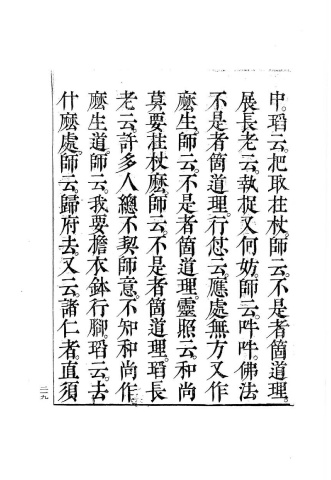 中。瑫云。把取柱杖。師云。不是者箇道理。
展長老云。執捉又何妨。師云。吽吽。佛法
不是者箇道理。行愆云。應處無方又作
麽生。師云。不是者箇道理。靈照云。和尚
莫要柱杖麽。師云。不是者箇道理。瑫長
老云。許多人總不契師意。不知和尚作
麽生道。師云。我要擔衣鉢行脚。瑫云。去
什麽處。師云。歸府去。又云。諸仁者。直須
二一九